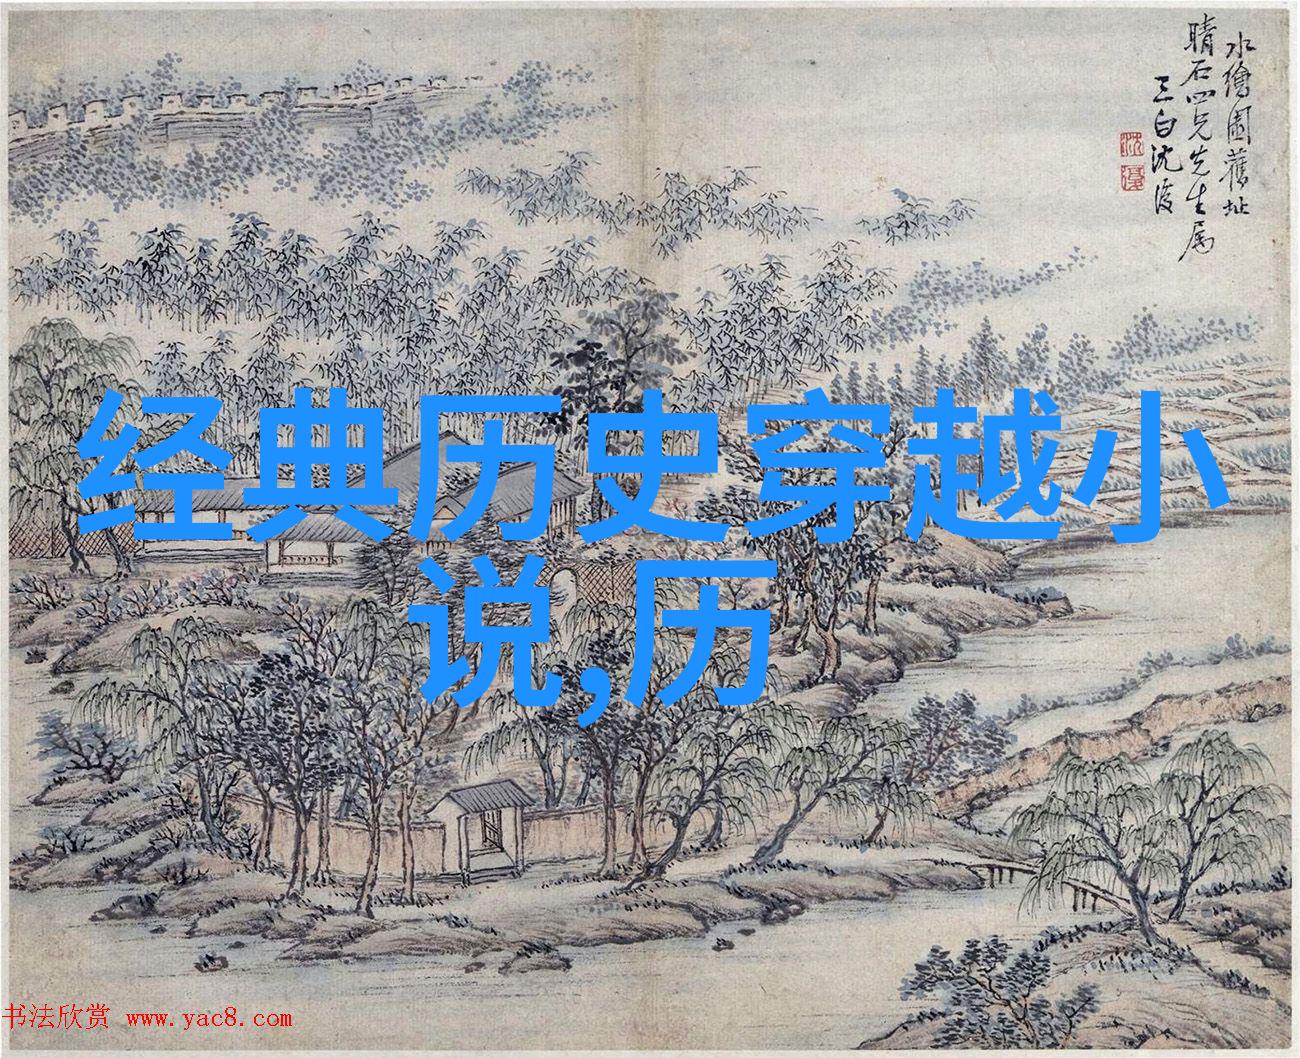 水繪園舊址
晴石四兄先生属
三白沈復
沈
復
经典历史穿越小
说,历
书法欣赏 www.yac8.com